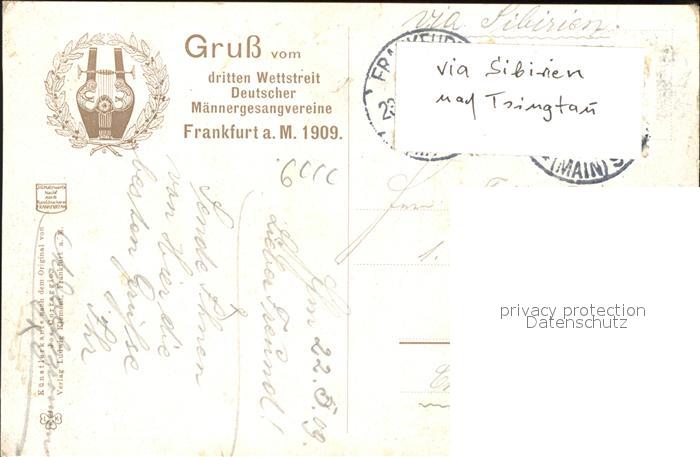 via Sibirien.
Gruß vom
dritten Wettstreit
Deutscher
Männergesangvereine
Frankfurt a. M. 1909.
FRANKFURT
(MAIN)
via Sibirien
nach Tsingtau
privacy protection
Datenschutz
Künstlerkarte nach dem Original von
Jos. Correggio
Verlag Ludwig Klement, Frankfurt a. M.
22. 5. 09.
Lieber Freund!
Sende Ihnen
von hier die
besten Grüße
Ihr